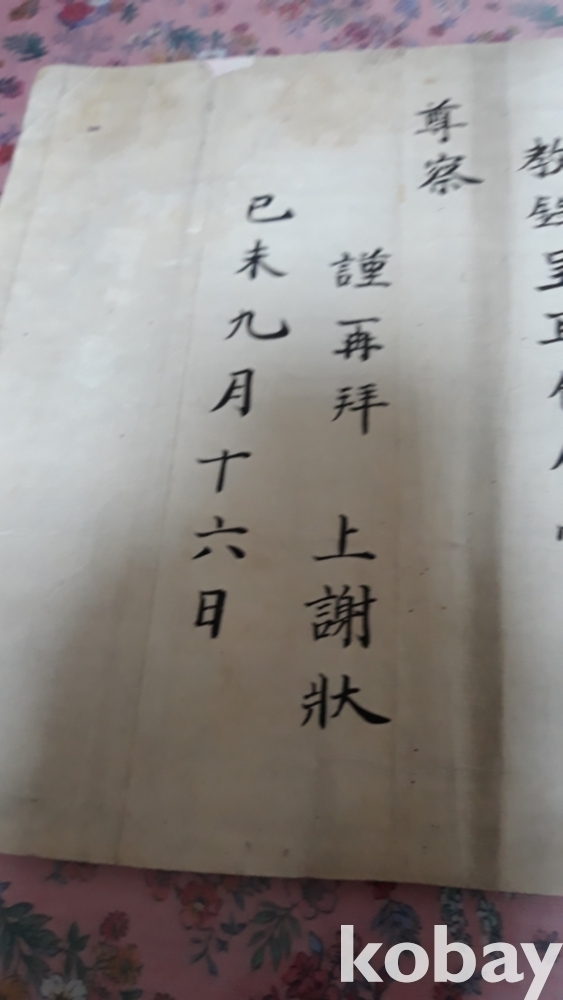 教
呈
尊察
謹再拜 上謝狀
己未九月十六日
kobay